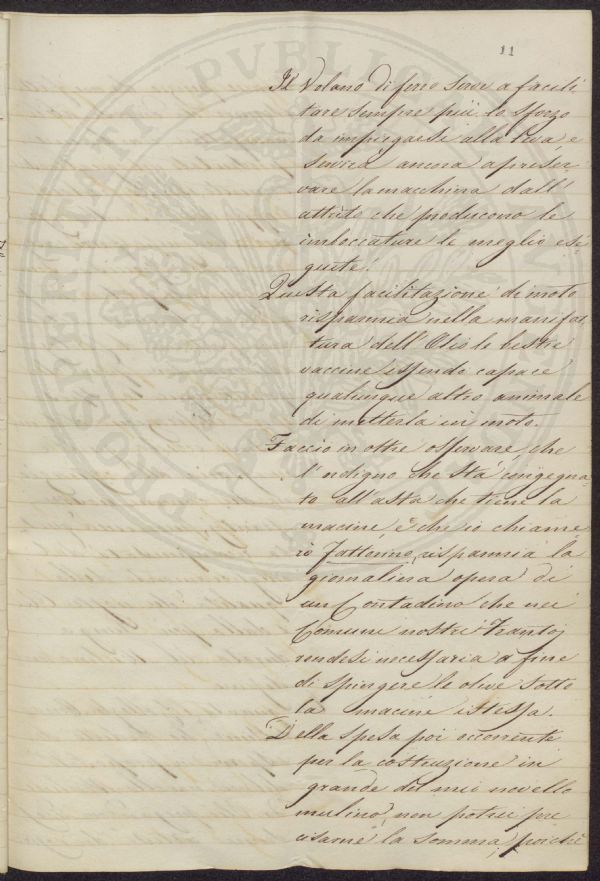 11
Il Volano di ferro serve a facili
tare sempre più lo sforzo
da impiegarsi alla leva, e
servirà ancora a preser
vare la macchina dall'
attrito che producono le
imboccature le meglio ese
guite.
Questa facilitazione di moto
risparmia nella manifat
tura dell'Olio le bestie
vaccine essendo capace
qualunque altro animale
di metterla in moto.
Faccio in oltre osservare che
l'ordigno che sta congegna
to all'asta che tiene la
macine, e che io chiame
rò Fattorino, risparmia la
giornaliera opera di
un Contadino che nei
Comuni nostri Frantoj
rendesi necessaria a fine
di spingere le olive sotto
la macine istessa.
Della spesa poi occorrente
per la costruzione in
grande del mio novello
mulino, non potrei pre
cisarne la somma, poichè
PROSPERITATI PVBLICAE